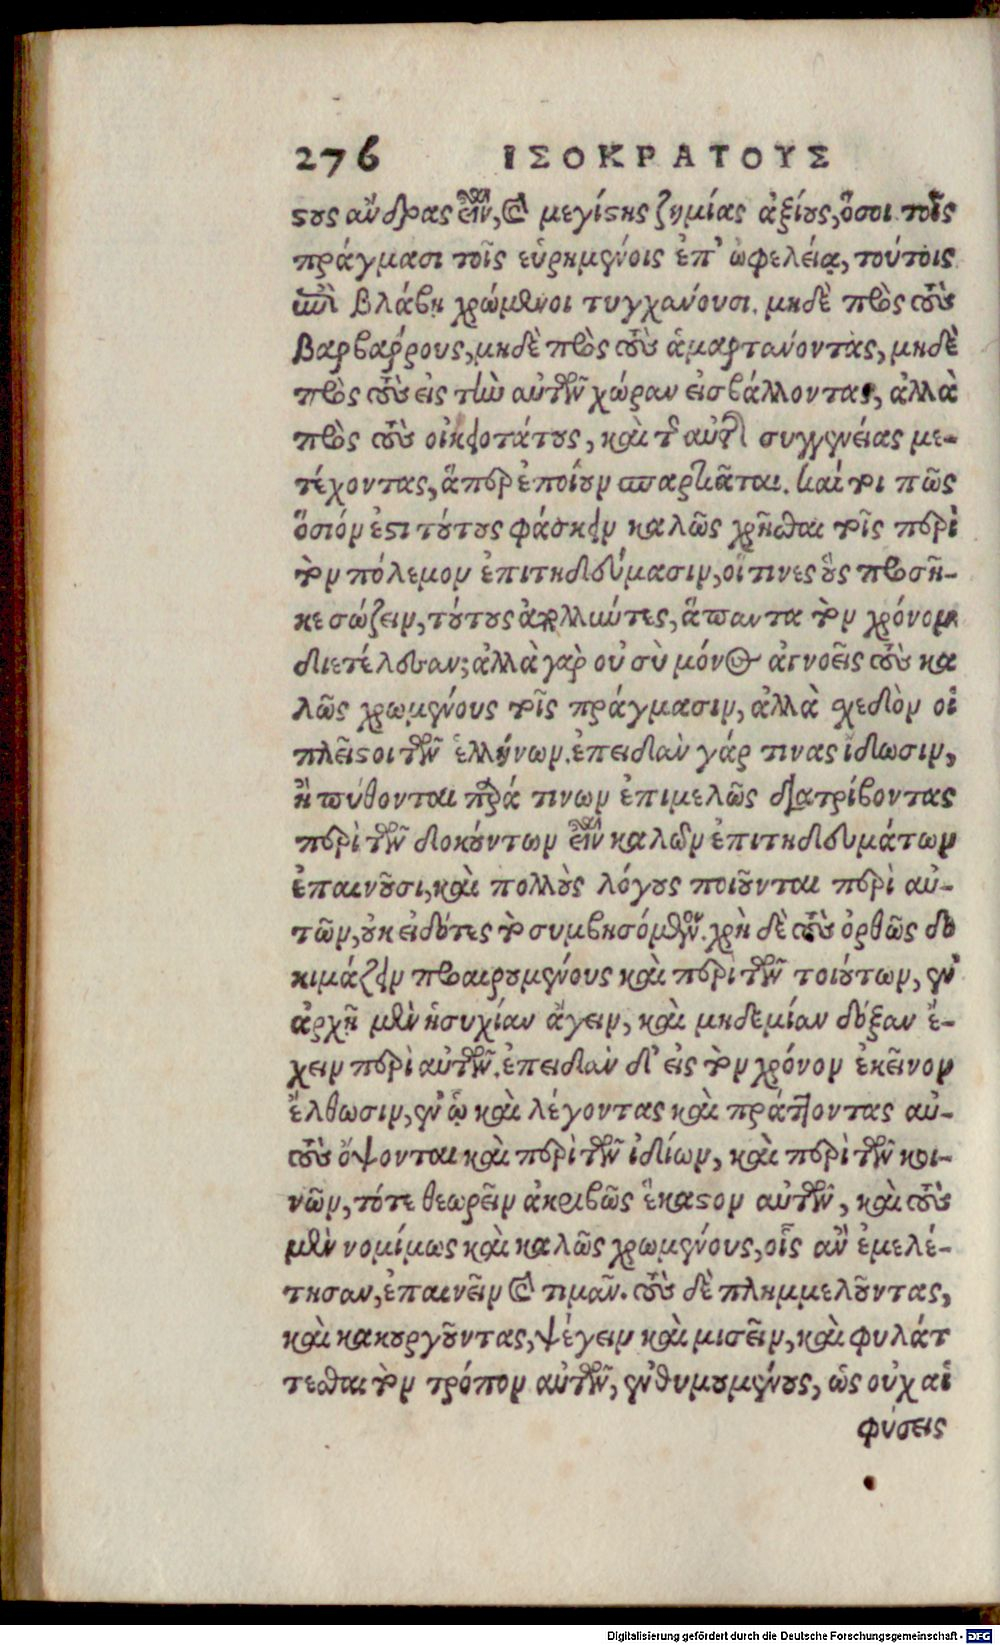 276 ΙΣΟΚΡΑΤΟΥΣ
ϛους ἄνδρας εἶναι, καὶ μεγίϛης ζημίας ἀξίους, ὅσοι τοῖς
πράγμασι τοῖς εὑρημένοις ἐπ' ὠφελείᾳ, τούτοις
ἐπὶ βλάβῃ χρώμενοι τυγχάνουσι. μηδὲ πρὸς τοὺς
βαρβάρρους, μηδὲ πρὸς τοὺς ἁμαρτάνοντας, μηδὲ
πρὸς τοὺς εἰς τὴν αὐτῶν χώραν εἰσβάλλοντας, ἀλλὰ
πρὸς τοὺς οἰκειοτάτους, καὶ τῆς αὐτῆς συγγενείας με-
τέχοντας, ἅπερ ἐποίουν σπαρτιᾶται. καί τοι πῶς
ὅσιόν ἐϛι τούτους φάσκειν καλῶς χρῆσθαι τοῖς περὶ
τὸν πόλεμον ἐπιτηδεύμασιν, οἵ τινες οὓς προσῆ-
κε σώζειν, τούτους ἀπολλύντες, ἅπαντα τὸν χρόνον
διετέλεσαν; ἀλλὰ γὰρ οὐ σὺ μόνος ἀγνοεῖς τοὺς κα
λῶς χρωμένους τοῖς πράγμασιν, ἀλλὰ σχεδὸν οἱ
πλεῖϛοι τῶν ἑλλήνων. ἐπειδὰν γάρ τινας ἴδωσιν,
ἢ πύθονται παρά τινων ἐπιμελῶς διατρίβοντας
περὶ τῶν δοκούντων εἶναι καλῶν ἐπιτηδευμάτων
ἐπαινοῦσι, καὶ πολλοὺς λόγους ποιοῦνται περὶ αὐ-
τῶν, οὐκ εἰδότες τὸ συμβησόμενον. χρὴ δὲ τοὺς ὀρθῶς δο
κιμάζειν προαιρουμένους καὶ περὶ τῶν τοιούτων, ἐν
ἀρχῇ μὲν ἡσυχίαν ἄγειν, καὶ μηδεμίαν δόξαν ἔ-
χειν περὶ αὐτῶν. ἐπειδὰν δ' εἰς τὸν χρόνον ἐκεῖνον
ἔλθωσιν, ἐν ᾧ καὶ λέγοντας καὶ πράττοντας αὐ-
τοὺς ὄψονται καὶ περὶ τῶν ἰδίων, καὶ περὶ τῶν κοι-
νῶν, τότε θεωρεῖν ἀκριβῶς ἕκαϛον αὐτῶν, καὶ τοὺς
μὲν νομίμως καὶ καλῶς χρωμένους, οἷς ἂν ἐμελέ-
τησαν, ἐπαινεῖν καὶ τιμᾶν. τοὺς δὲ πλημμελοῦντας,
καὶ κακουργοῦντας, ψέγειν καὶ μισεῖν, καὶ φυλάτ
τεσθαι τὸν τρόπον αὐτῶν, ἐνθυμουμένους, ὡς οὐχ αἱ
φύσεις
Digitalisierung gefördert durch die Deutsche Forschungsgemeinschaft - DFG